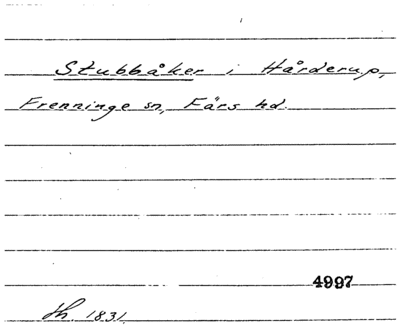 Stubbåker i Hårderup,
Frenninge sn, Färs hd.
4997
th. 1831